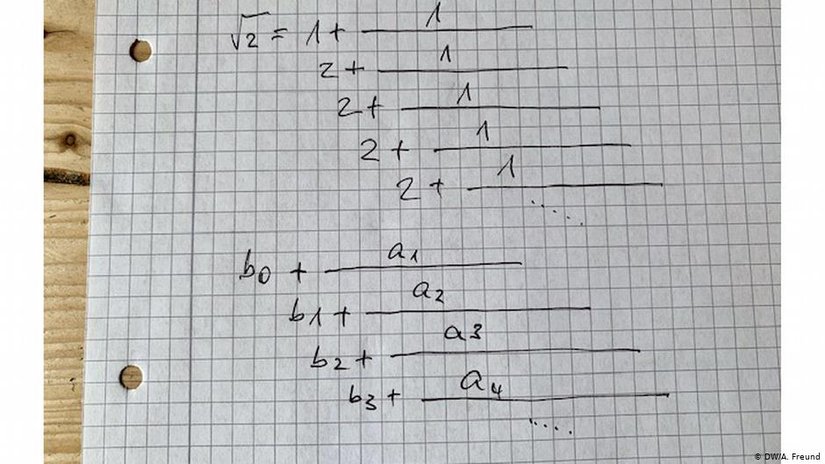 √2 = 1 + 1
2 + 1
2 + 1
2 + 1
2 + 1
.....
b0 + a1
b1 + a2
b2 + a3
b3 + a4
.....
© DW/A. Freund